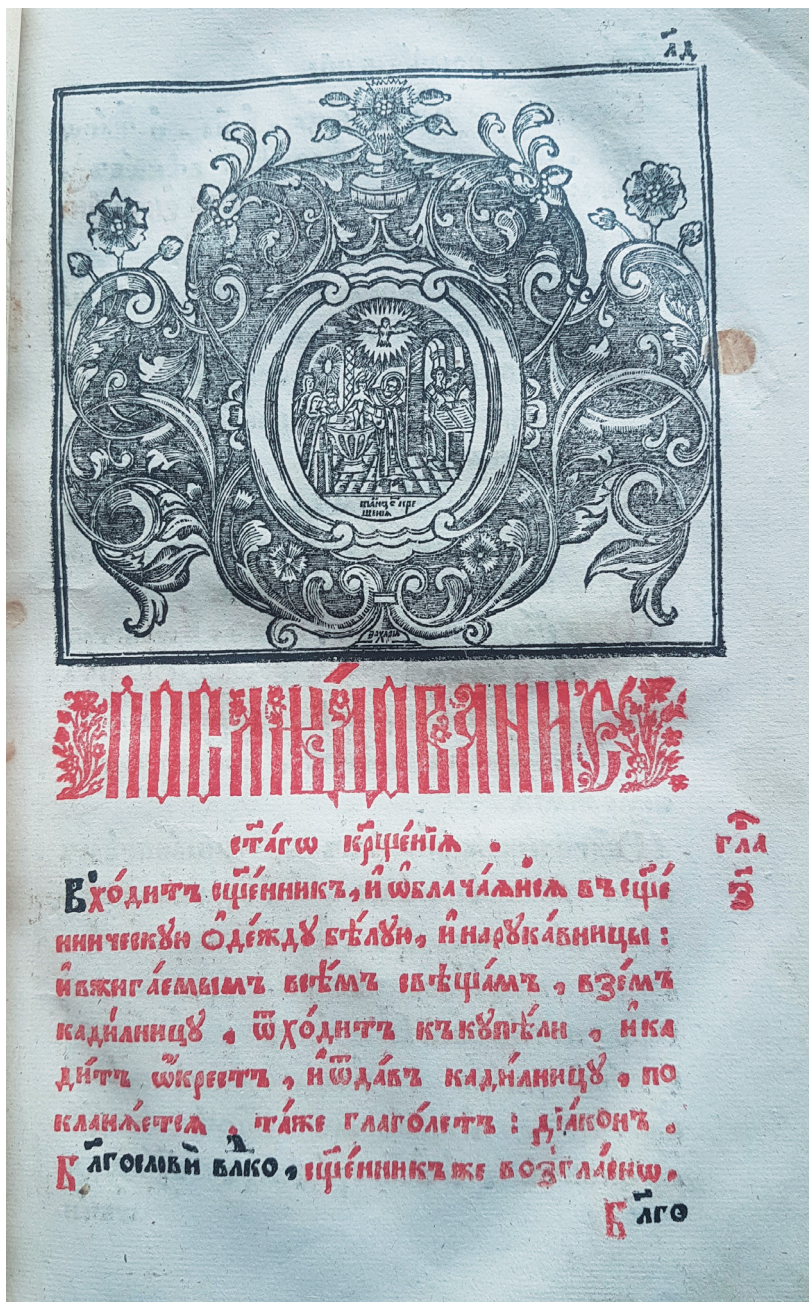 л҃д
таинст҃во кре
щенїѧ
ПОСЛѢ́ДОВАНИЕ
ст҃а́гѡ кр҃ще́нїѧ .
гла҃
з҃
Вхо́дитъ сщ҃е́нникъ, и҆ ѡ҆блача́ѧйсѧ въ сщ҃е
нническую ѻ҆де́жду бѣ́лую, и҆ нарука́вницы :
и҆ вжига́емымъ всѣ́мъ свѣща́мъ , взе́мъ
кади́лницу , ѿхо́дитъ къ купѣ́ли , и҆ ка
ди́тъ ѡ҆́крестъ , и҆ ѿда́въ кади́лницу , по
клани́ѧетсѧ , та́же глаго́летъ : дїа́конъ .
Бл҃гослови̑ вл҃ко , сщ҃е́нникъ же возгла́снѡ .
Бл҃го